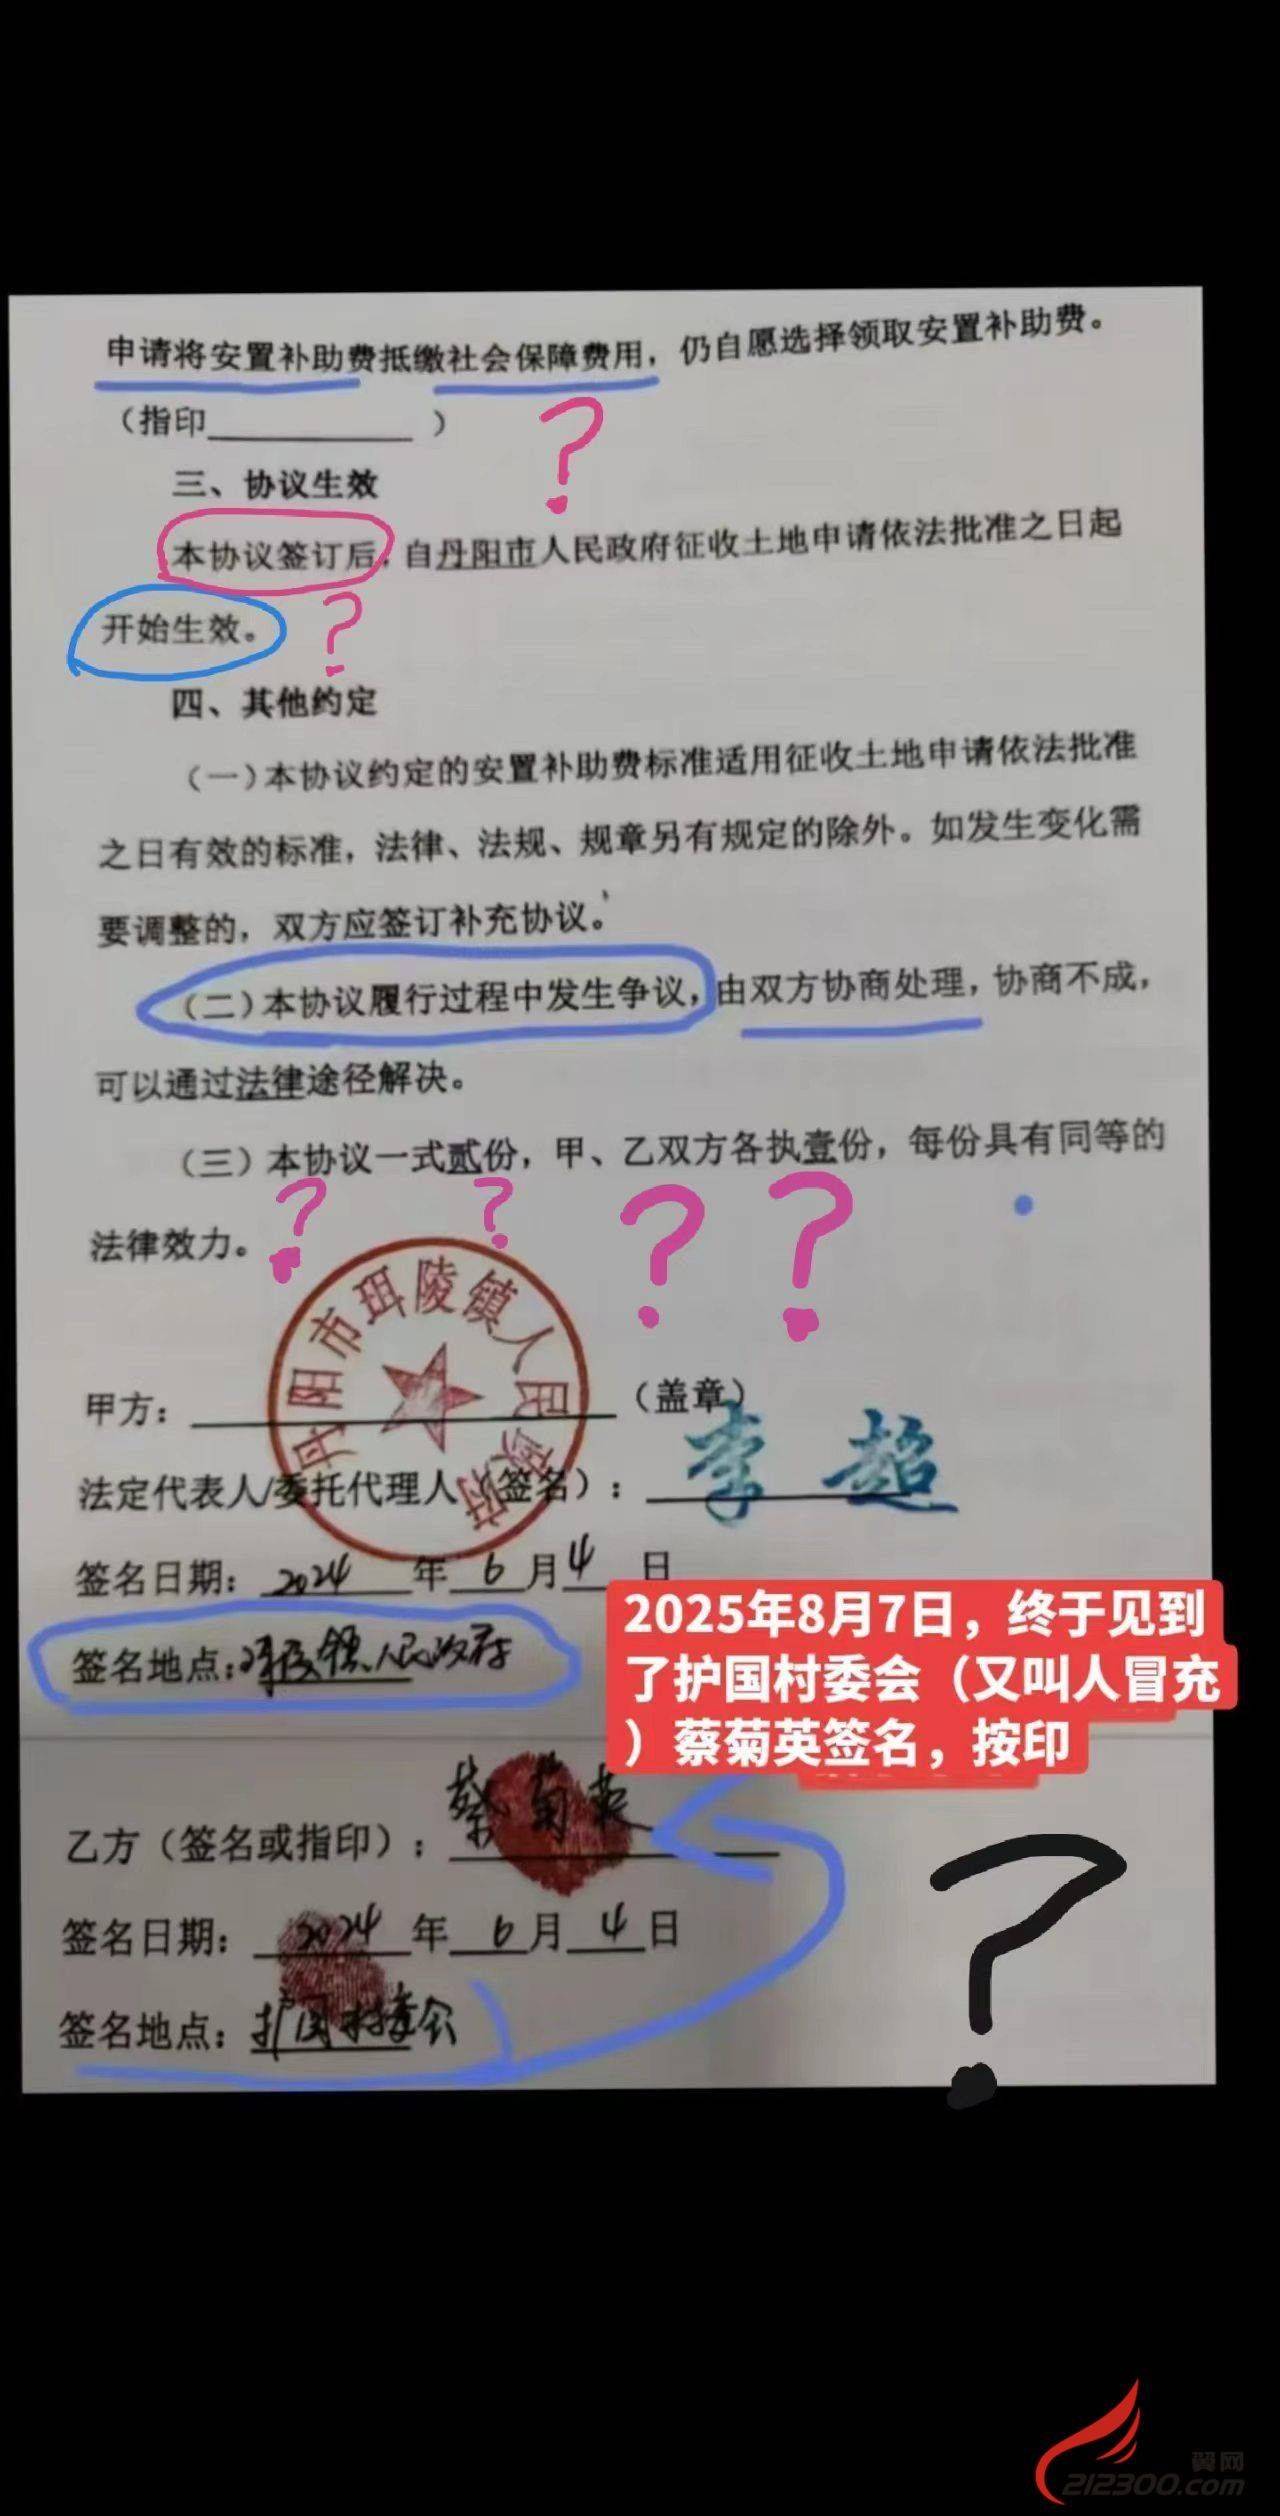 申请将安置补助费抵缴社会保障费用，仍自愿选择领取安置补助费。
（指印＿＿＿＿＿＿）
三、协议生效
本协议签订后，自丹阳市人民政府征收土地申请依法批准之日起
开始生效。
四、其他约定
（一）本协议约定的安置补助费标准适用征收土地申请依法批准
之日有效的标准，法律、法规、规章另有规定的除外。如发生变化需
要调整的，双方应签订补充协议。
（二）本协议履行过程中发生争议，由双方协商处理，协商不成，
可以通过法律途径解决。
（三）本协议一式贰份，甲、乙双方各执壹份，每份具有同等的
法律效力。
丹阳市珥陵镇人民政府
甲方：（盖章）
法定代表人/委托代理人（签名）：李超
签名日期：2024年6月4日
签名地点：珥陵镇人民政府
2025年8月7日，终于见到
了护国村委会（又叫人冒充
）蔡菊英签名，按印
乙方（签名或指印）：蔡菊英
签名日期：2024年6月4日
签名地点：护国村委会
翼网
212300.com